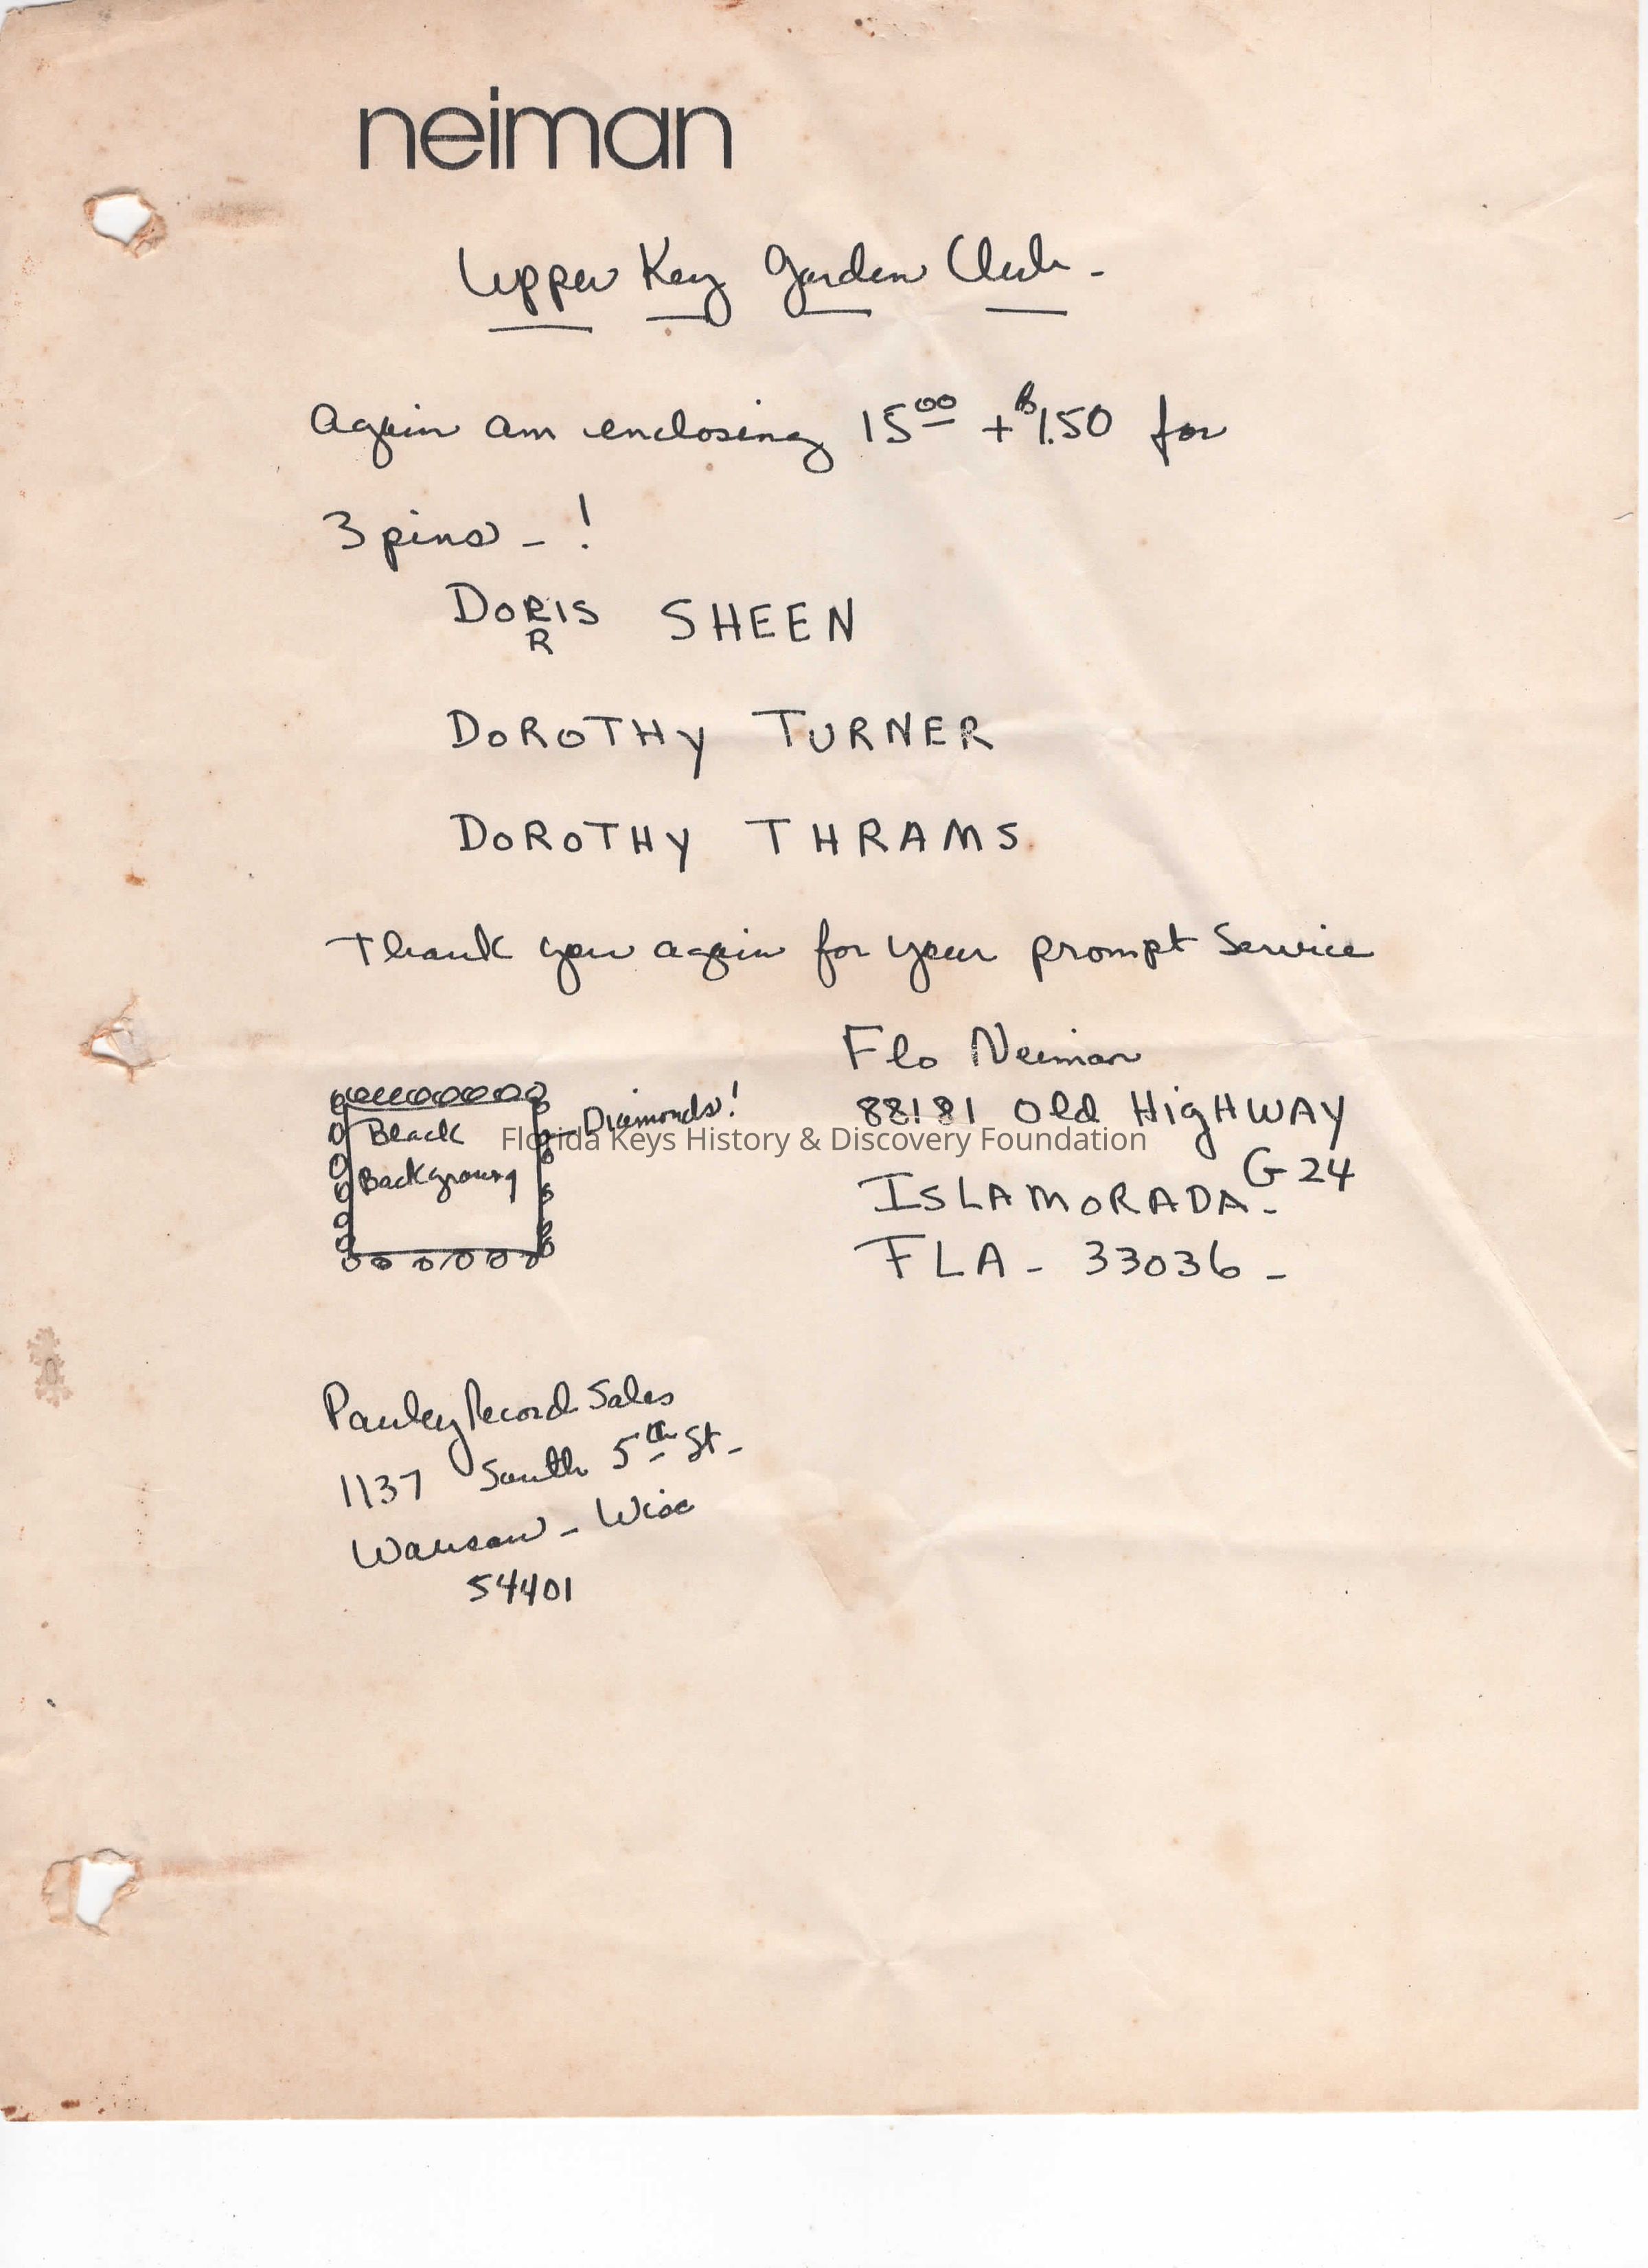 neiman
Upper Key Garden Club -
Again am enclosing 15 00 + $1.50 for
3 pins - !
DORIS SHEEN
R
DOROTHY TURNER
DOROTHY THRAMS
Thank you again for your prompt Service
Flo Neiman
Diamonds!
88181 Old HigHWAY
Black
Florida Keys History & Discovery Foundation
G 24
Background
ISLAMORADA -
FLA - 33036 -
Pauley Record Sales
1137 South 5th St -
Wausaw - Wisc
54401